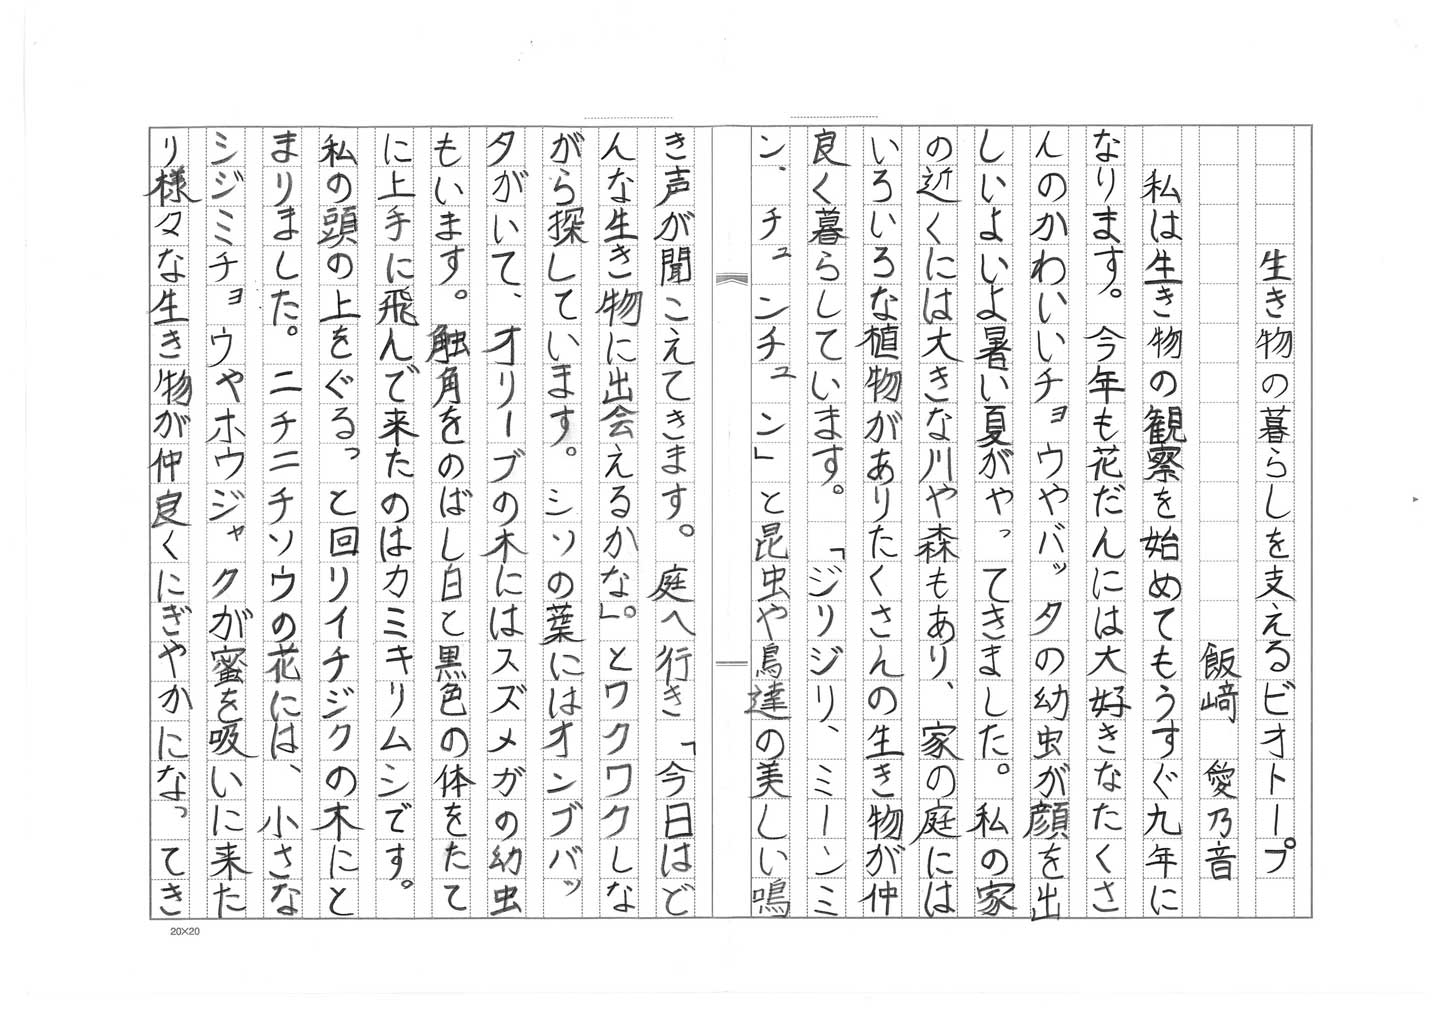 生き物の暮らしを支えるビオトープ
飯﨑　愛乃音
私は生き物の観察を始めてもうすぐ九年に
なります。今年も花だんには大好きなたくさ
んのかわいいチョウやバッタの幼虫が顔を出
しいよいよ暑い夏がやってきました。私の家
の近くには大きな川や森もあり、家の庭には
いろいろな植物がありたくさんの生き物が仲
良く暮らしています。「ジリジリ、ミーンミ
ン、チュンチュン」と昆虫や鳥達の美しい鳴
き声が聞こえてきます。庭へ行き「今日はど
んな生き物に出会えるかな」。とワクワクしな
がら探しています。シソの葉にはオンブバッ
タがいて、オリーブの木にはスズメガの幼虫
もいます。触角をのばし白と黒色の体をたて
に上手に飛んで来たのはカミキリムシです。
私の頭の上をぐるっと回りイチジクの木にと
まりました。ニチニチソウの花には、小さな
シジミチョウやホウジャクが蜜を吸いに来た
り様々な生き物が仲良くにぎやかになってき
20×20